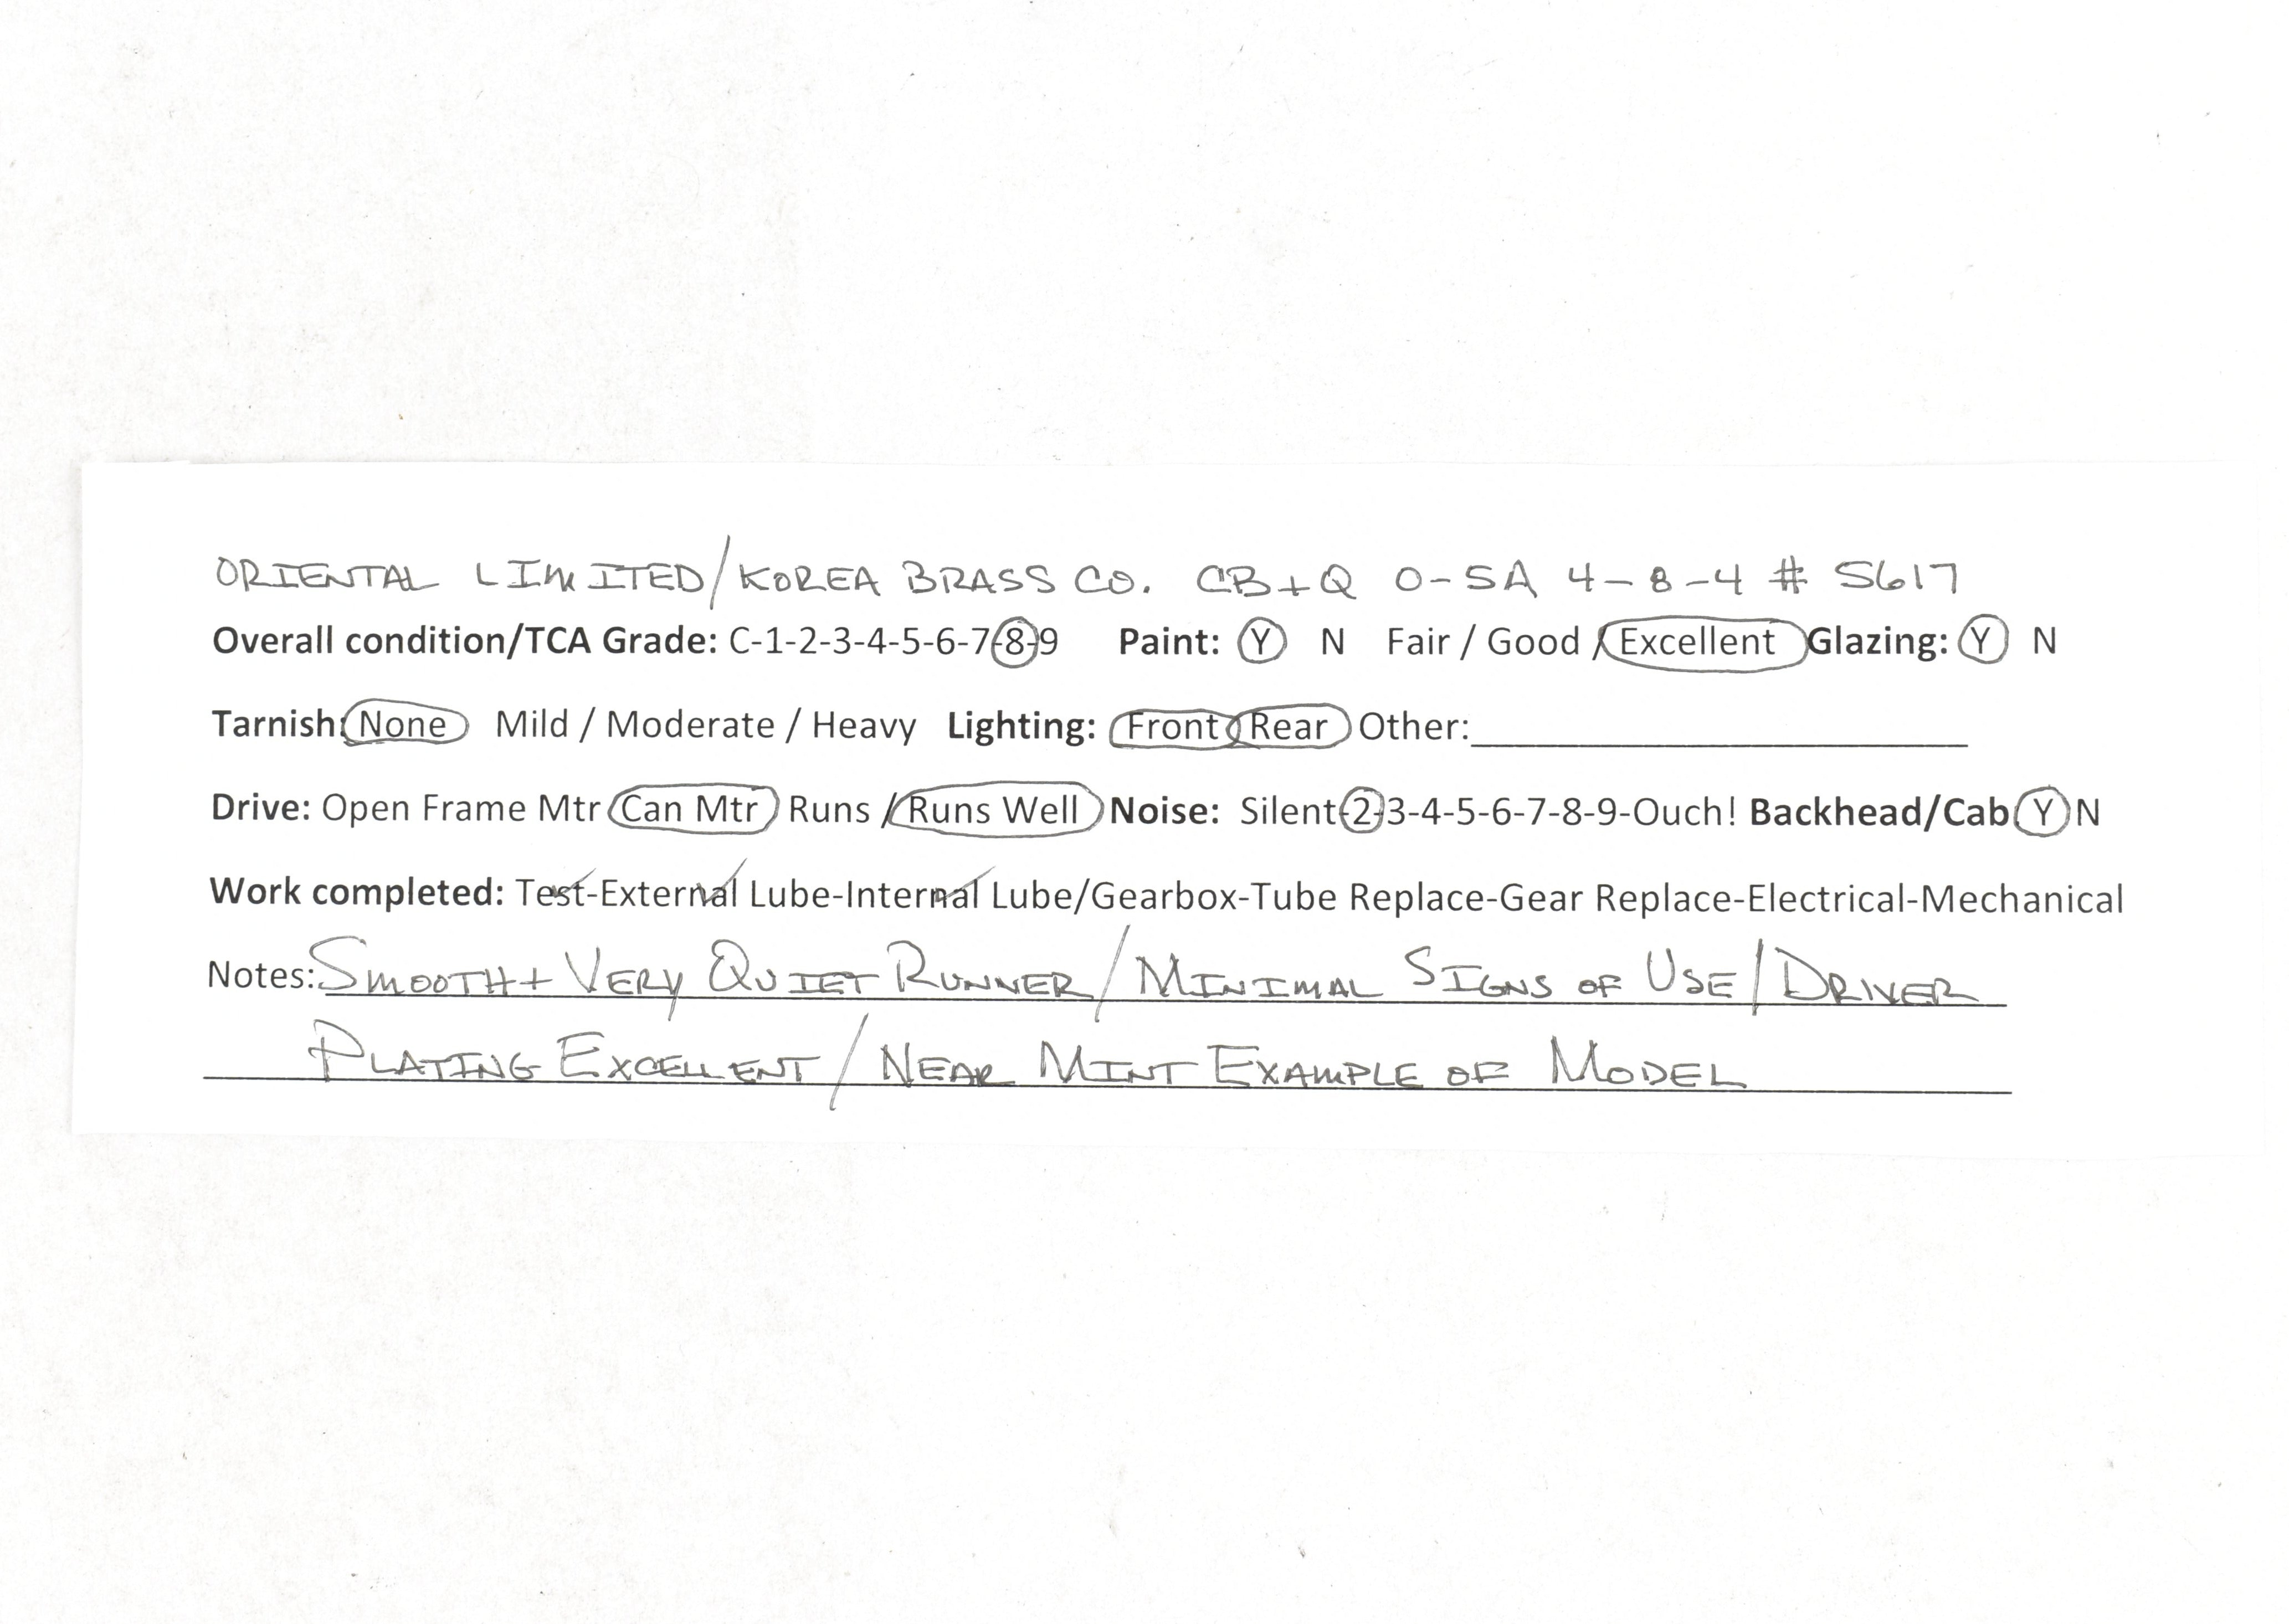 ORIENTAL LIMITED/KOREA BRASS CO. CB+Q O-5A 4-8-4 # 5617
Overall condition/TCA Grade: C-1-2-3-4-5-6-7-8-9 Paint: Y N Fair / Good / Excellent Glazing: Y N
Tarnish: None Mild / Moderate / Heavy Lighting: Front Rear Other:
Drive: Open Frame Mtr Can Mtr Runs / Runs Well Noise: Silent-2-3-4-5-6-7-8-9-Ouch! Backhead/Cab Y N
Work completed: Test-External Lube-Internal Lube/Gearbox-Tube Replace-Gear Replace-Electrical-Mechanical
Notes: SMOOTH + VERY QUIET RUNNER / MINIMAL SIGNS OF USE / DRIVER
PLATING EXCELLENT / NEAR MINT EXAMPLE OF MODEL